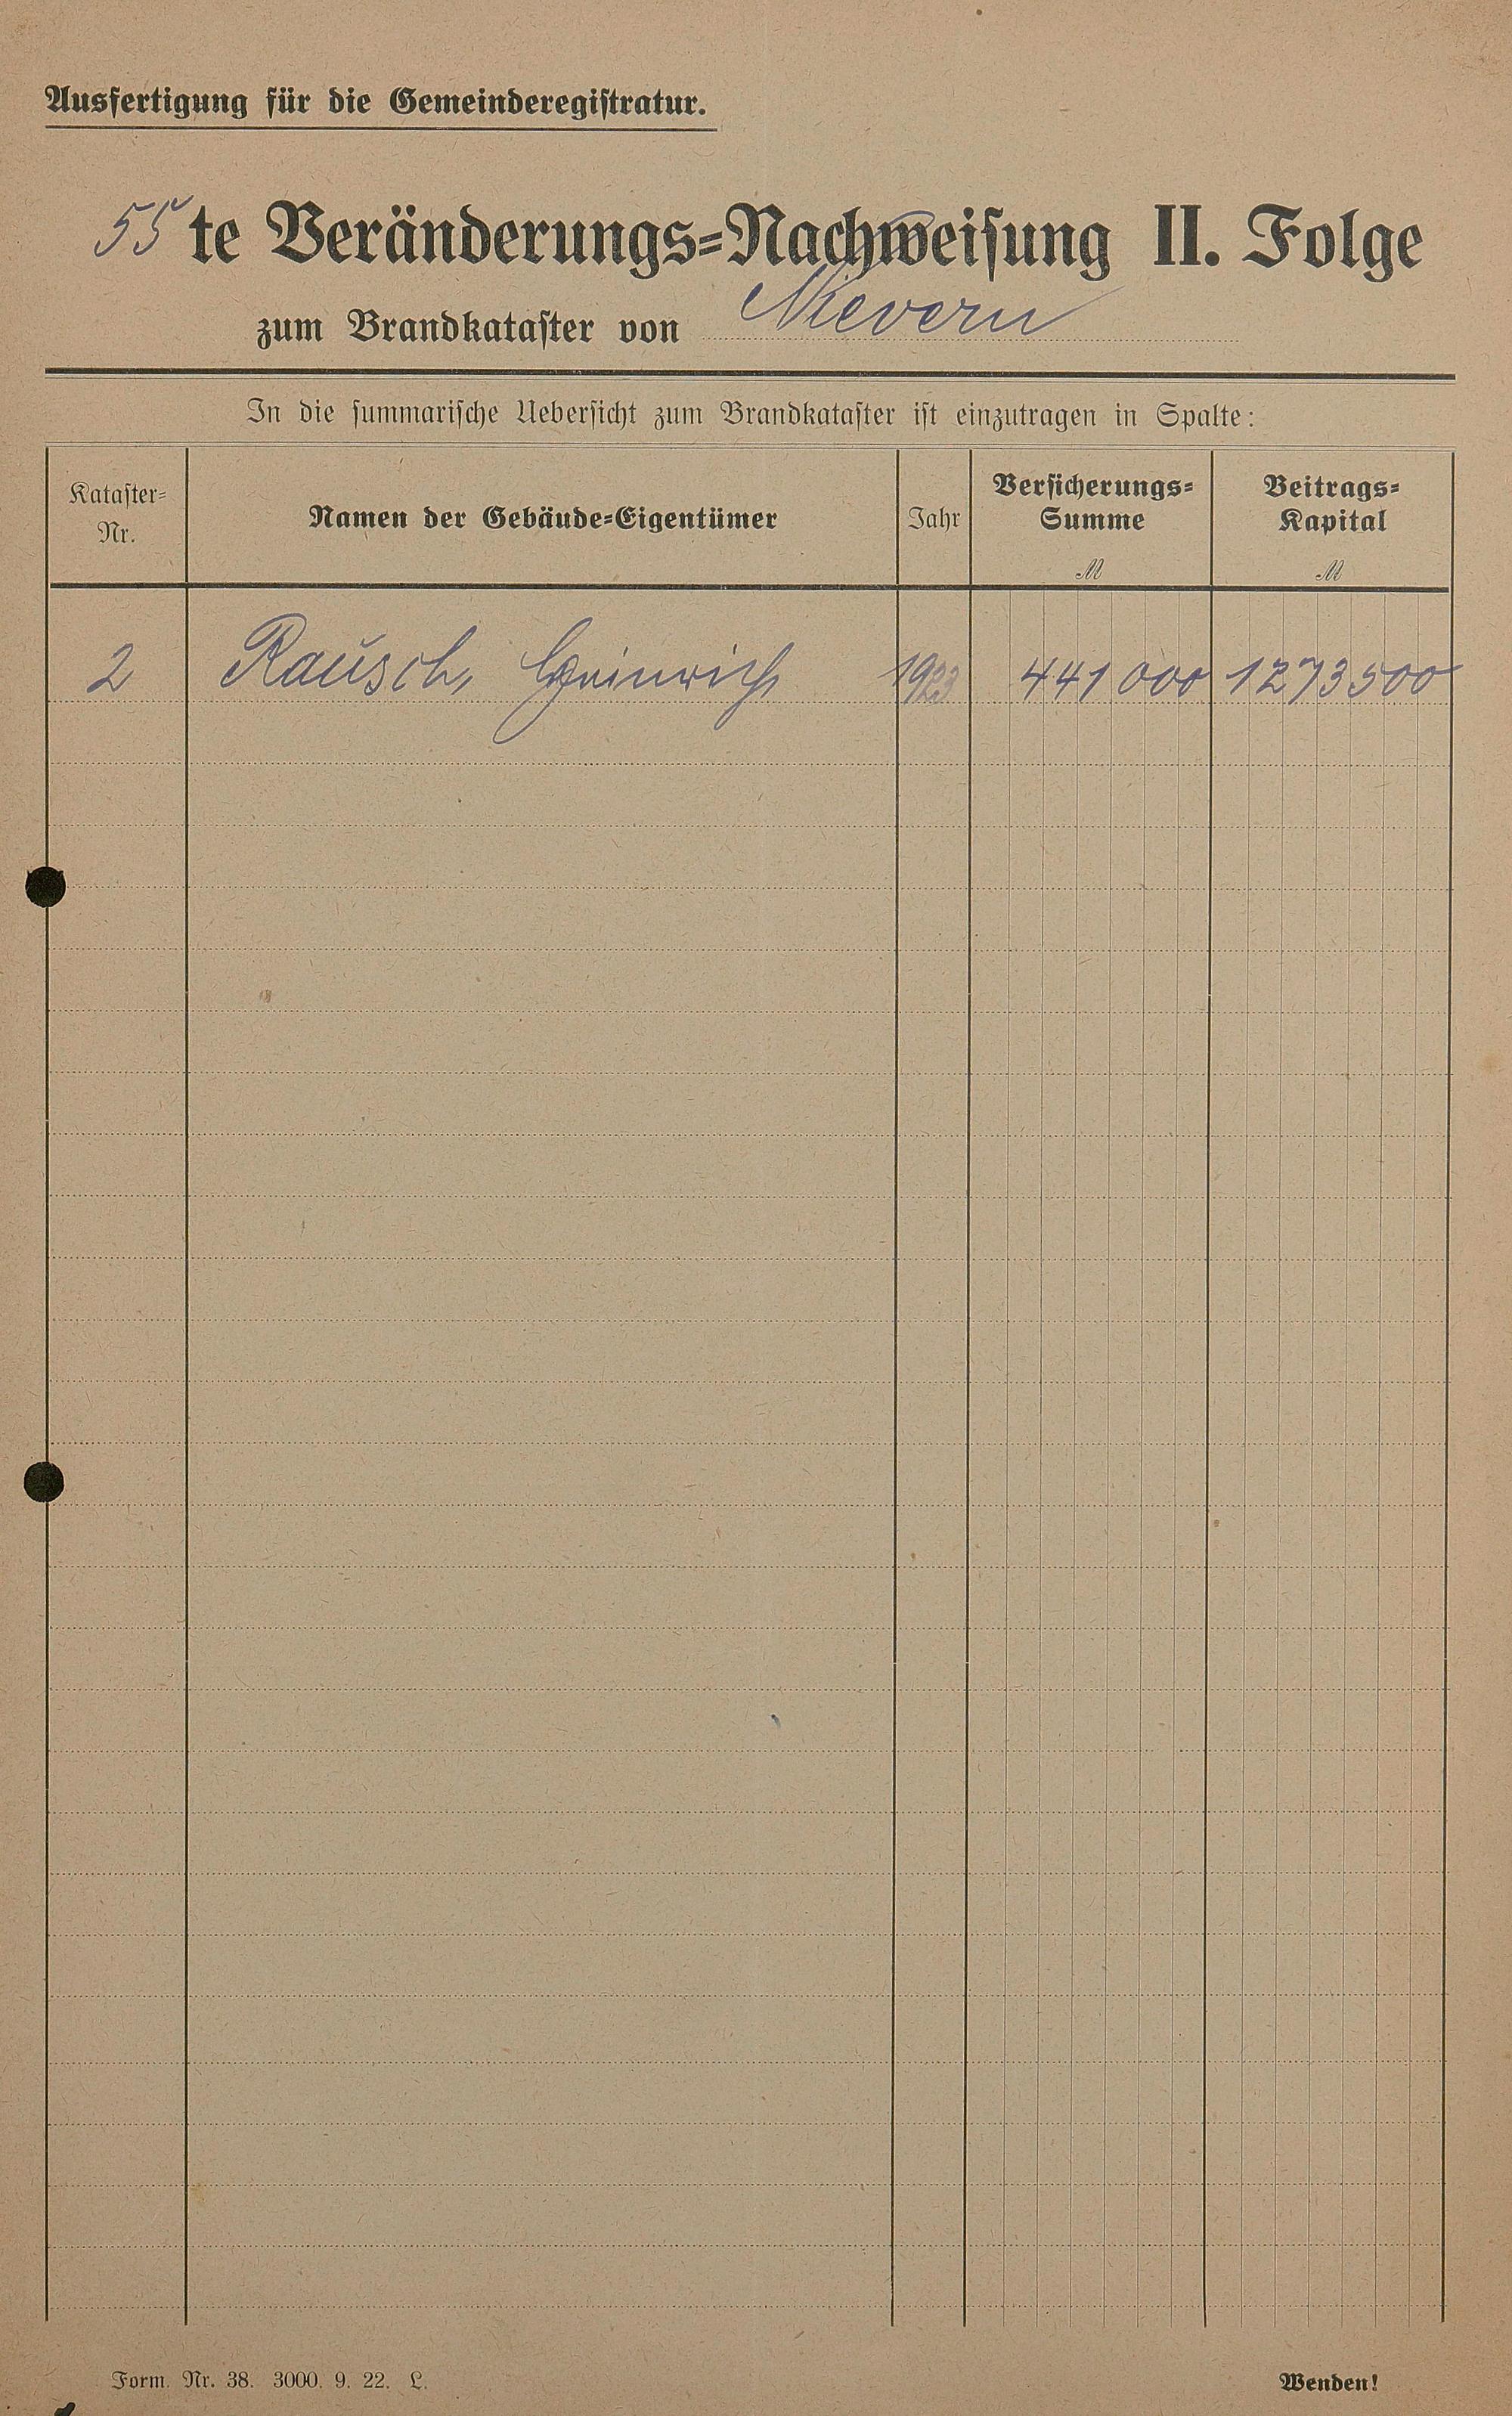 Ausfertigung für die Gemeinderegistratur.
55te Veränderungs=Nachweisung II. Folge
zum Brandkataster von Nievern
In die summarische Uebersicht zum Brandkataster ist einzutragen in Spalte:
Kataster=Nr. Namen der Gebäude=Eigentümer Jahr Versicherungs=Summe M Beitrags=Kapital M
2 Rausch, Heinrich 1923 441 000 1273500
Form. Nr. 38. 3000. 9. 22. L. Wenden!